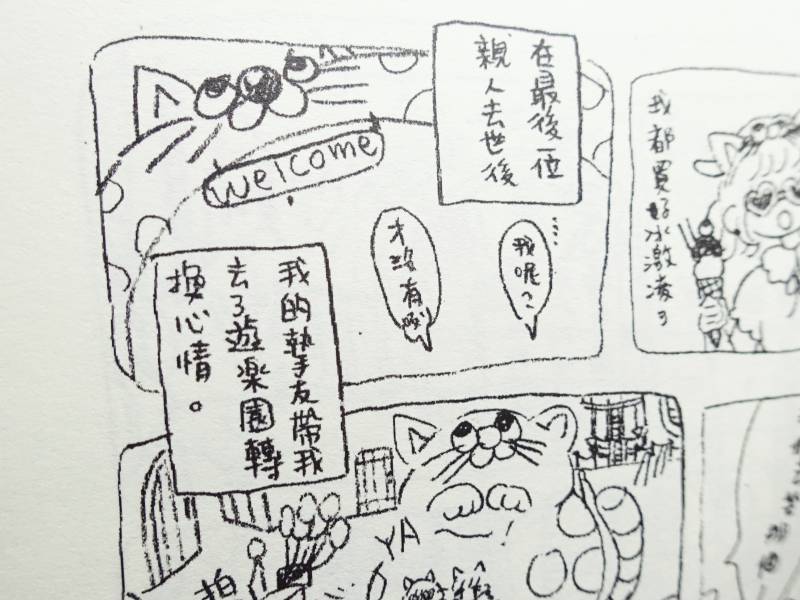 我都買好冰激凌了
在最後一位
親人去世後
welcome
我呢?
才沒有咧
我的摯友帶我
去了遊樂園轉
換心情。
YA
!
拍